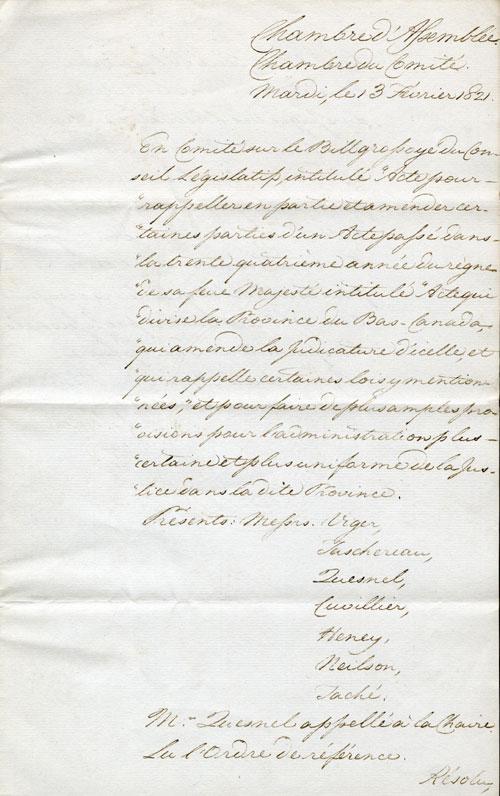 Chambre d'Assemblée.
Chambre du Comité.
Mardi, le 13 Février 1821.
En Comité sur le Bill grossoyé du Con
seil Législatif, intitulé "Acte pour
"rappeller en partie et amender cer-
"taines parties d'un Acte passé dans
"la trente quatrième année du règne
"de sa feue Majesté intitulé "Acte qui
divise la Province du Bas-Canada,
"qui amende la Judicature d'icelle et
"qui rappelle certaines lois y mention-
"nées," et pour faire de plus amples pro
"visions pour l'administration plus
"certaine et plus uniforme de la Jus-
"tice dans la dite Province.
Présents: Messrs. Viger,
Taschereau,
Quesnel,
Cuvillier,
Heney,
Neilson,
Taché.
Mr. Quesnel appellé à la Chaire.
Lu l'Ordre de référence.
Résolu,